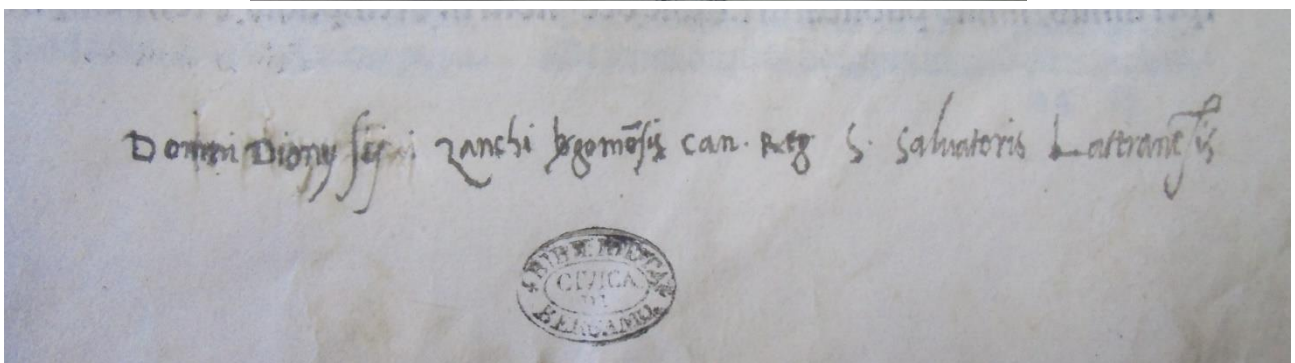 Domini Dionysij Zanchi bgomēsis can. Reg S. Salvatoris Lateranēsis
BIBLIOTECA
CIVICA
DI
BERGAMO